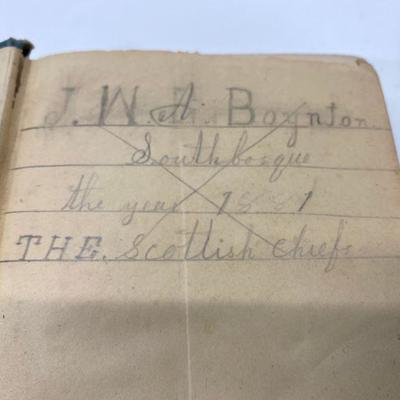 J. W. A. Boynton.
South bosque
the year 1881
THE. Scottish Chiefs